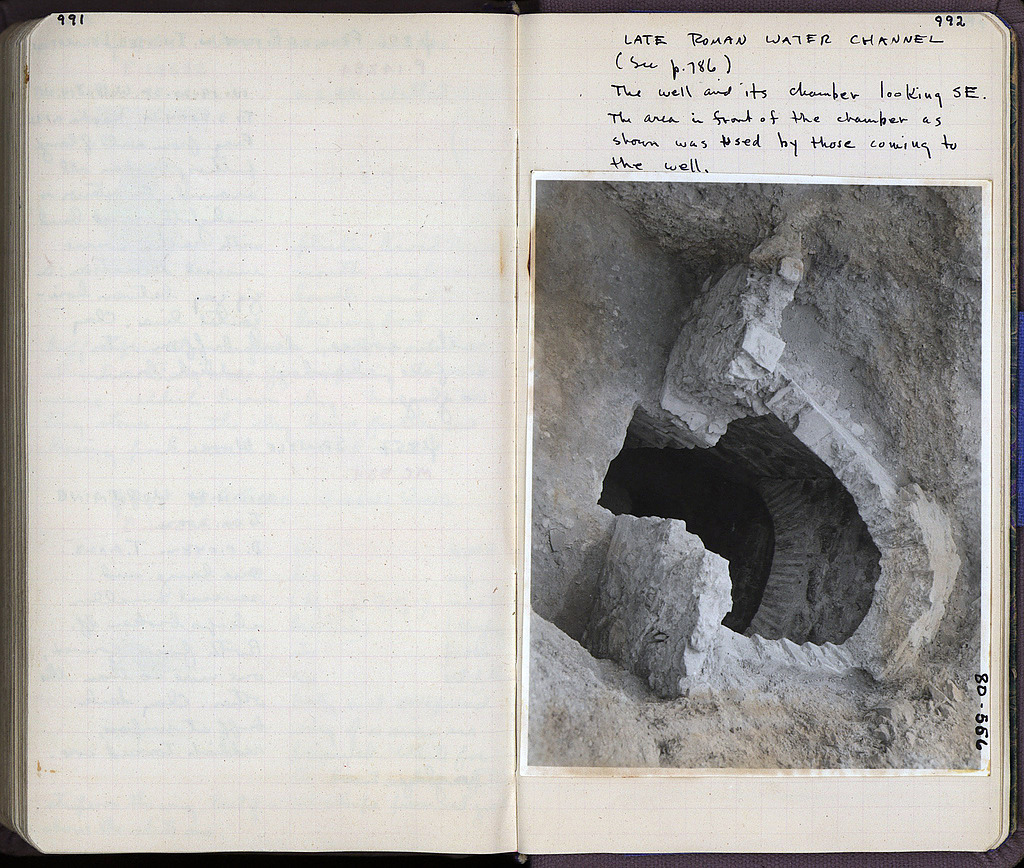 991
992
LATE ROMAN WATER CHANNEL
(See p.786)
The well and its chamber looking SE.
The area in front of the chamber as
shown was used by those coming to
the well.
80-556